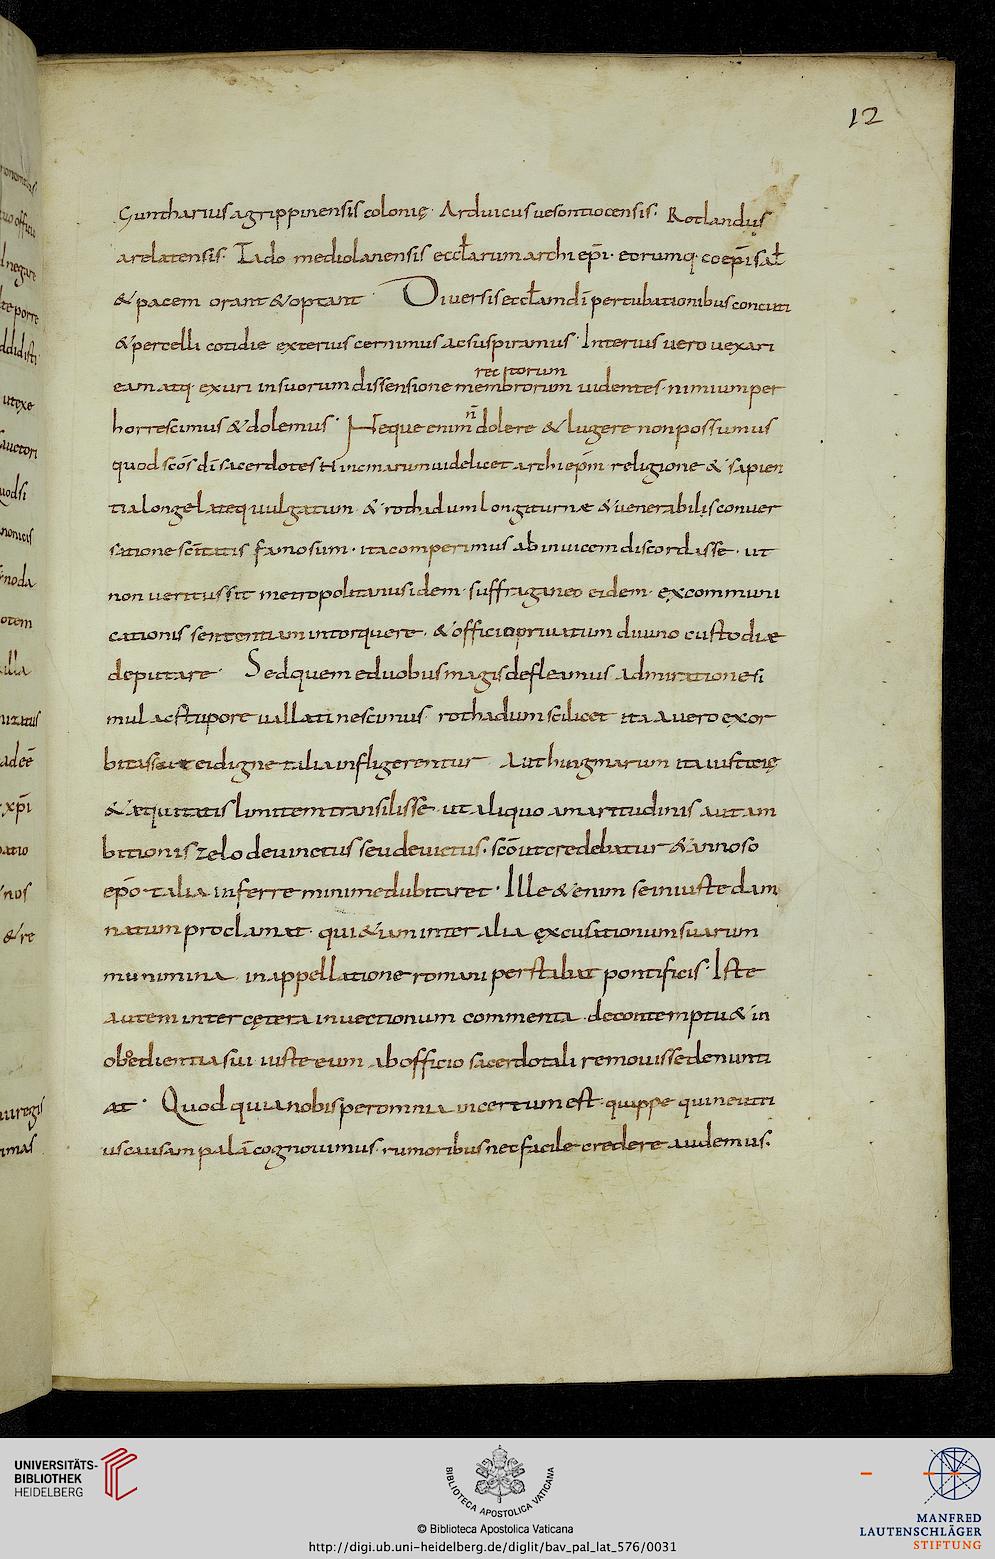 12
Guntharius agrippinensis colonię· Arduicus uesontiocensis· Rotlandus
arelatensis· Tado mediolanensis eccłarum archi ep̄i· eorumq· coep̄i sał
& pacem orant & optant· Diuersis eccłam dī pertubationibus concuti
& percelli cotidie exterius cernimus ac suspiramus· Interius uero uexari
rectorum
eam atq· exuri in suorum dissensione membrorum uidentes· nimium per
horrescimus & dolemus· Neque enim n̄ dolere & lugere non possumus
quod sc̄os dī sacerdotes hincmarum uidelicet archi ep̄m religione & sapien
tia longe lateq uulgatum· & rothadum longiturnæ & uenerabilis conuer
satione sc̄itatis famosum· ita comperimus ab inuicem discordasse· ut
non ueritus sit metropolitanus idem· suffraganeo eidem· excommuni
cationis sententiam intorquere· & officio priuatum diuino custodiæ
deputare· Sed quem e duobus magis defleamus admiratione si
mul ac stupore uallati nescimus· rothadum scilicet ita a uero exor
bitasse ut ei digne talia infligerentur· Aut hingmarum ita iusticię
& æquitatis limitem transilisse· ut aliquo amaritudinis aut am
bitionis zelo deuinctus seu deuictus· sc̄o ut credebatur & annoso
ep̄o talia inferre minime dubitaret· Ille & enim se iniuste dam
natum proclamat· qui & iam inter alia excusationum suarum
munimina in appellatione romani perstabat pontificis· Iste
autem inter cętera inuectionum commenta de contemptu & in
oboedientia sui iuste eum ab officio sacerdotali remouisse denunti
at· Quod quia nobis per omnia incertum est· quippe qui neutri
us causam palā cognouimus· rumoribus nec facile credere audemus·
UNIVERSITÄTS-
BIBLIOTHEK
HEIDELBERG
BIBLIOTECA APOSTOLICA VATICANA
© Biblioteca Apostolica Vaticana
http://digi.ub.uni-heidelberg.de/diglit/bav_pal_lat_576/0031
MANFRED
LAUTENSCHLÄGER
STIFTUNG